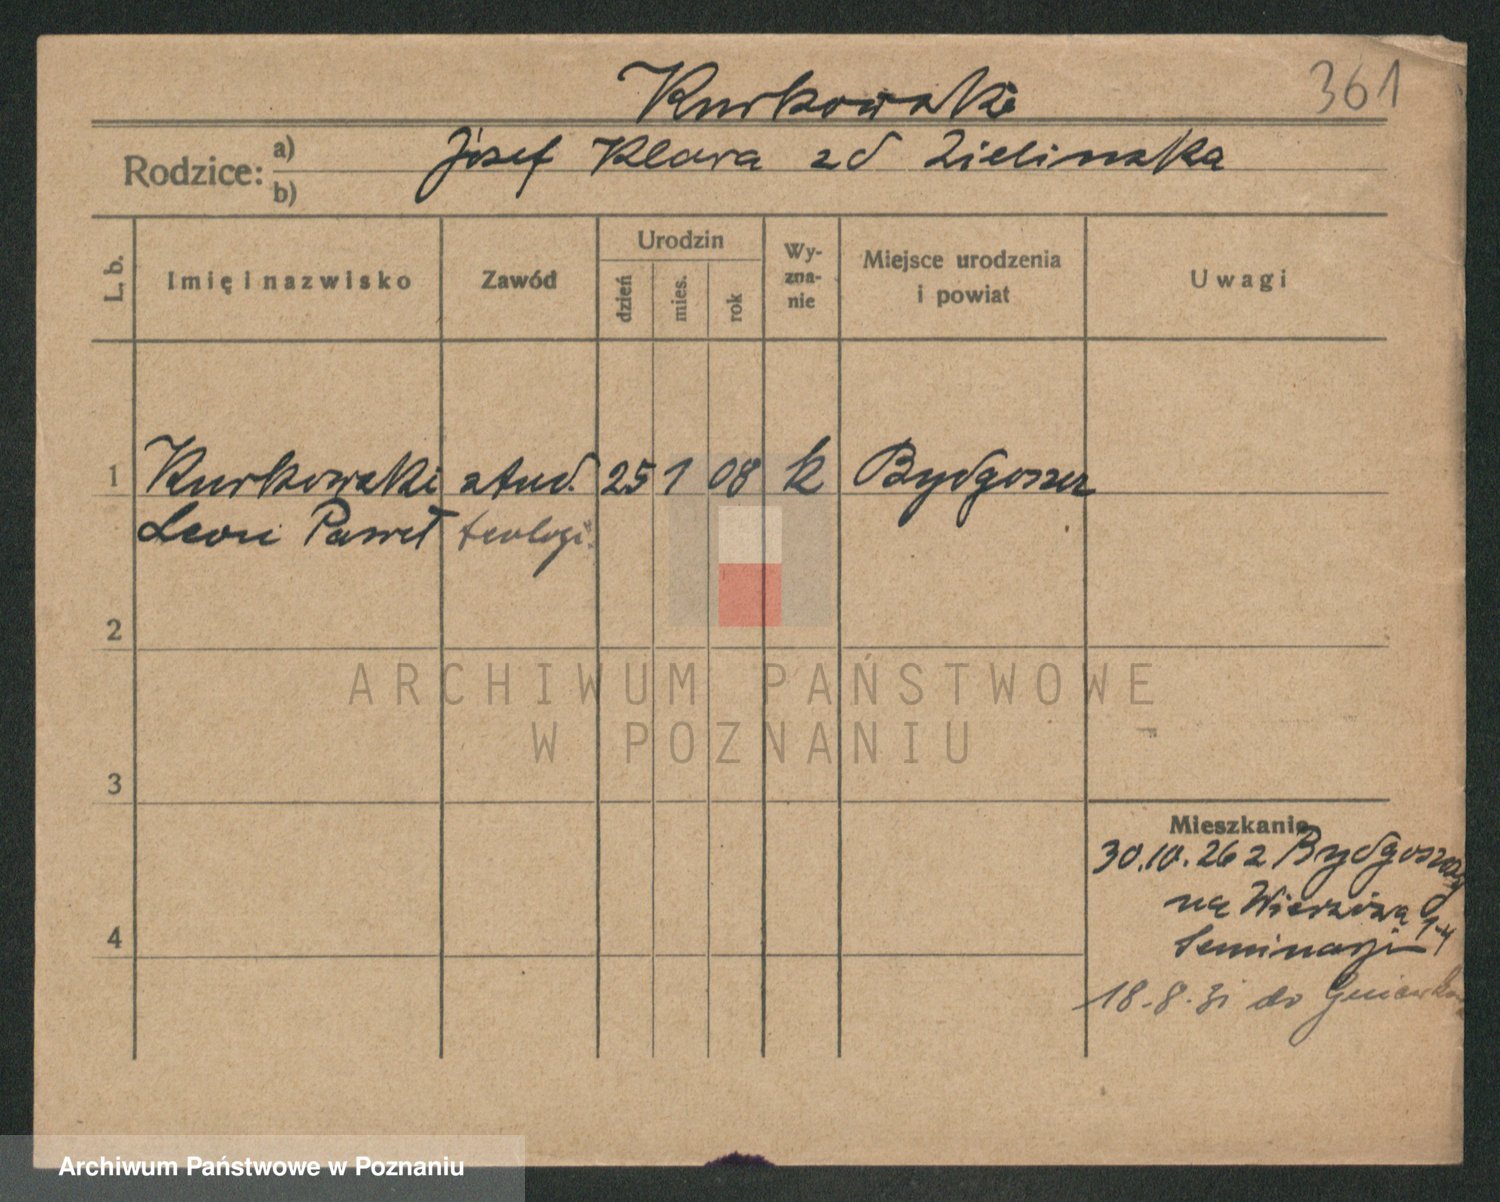 Kurkowski
361
Rodzice:
a)
b)
Józef Klara zd Zielinska
L. b.
Imię i nazwisko
Zawód
Urodzin
dzień
mies.
rok
Wy-
zna-
nie
Miejsce urodzenia
i powiat
Uwagi
1
Kurkowski
Leon Paweł
stud.
teologi
25
1
08
k
Bydgoszcz
2
ARCHIWUM PAŃSTWOWE
W POZNANIU
3
Mieszkanie
30.10.26 z Bydgoszczy
na
Seminarji
4
18.8.31 do Gniewko
Archiwum Państwowe w Poznaniu